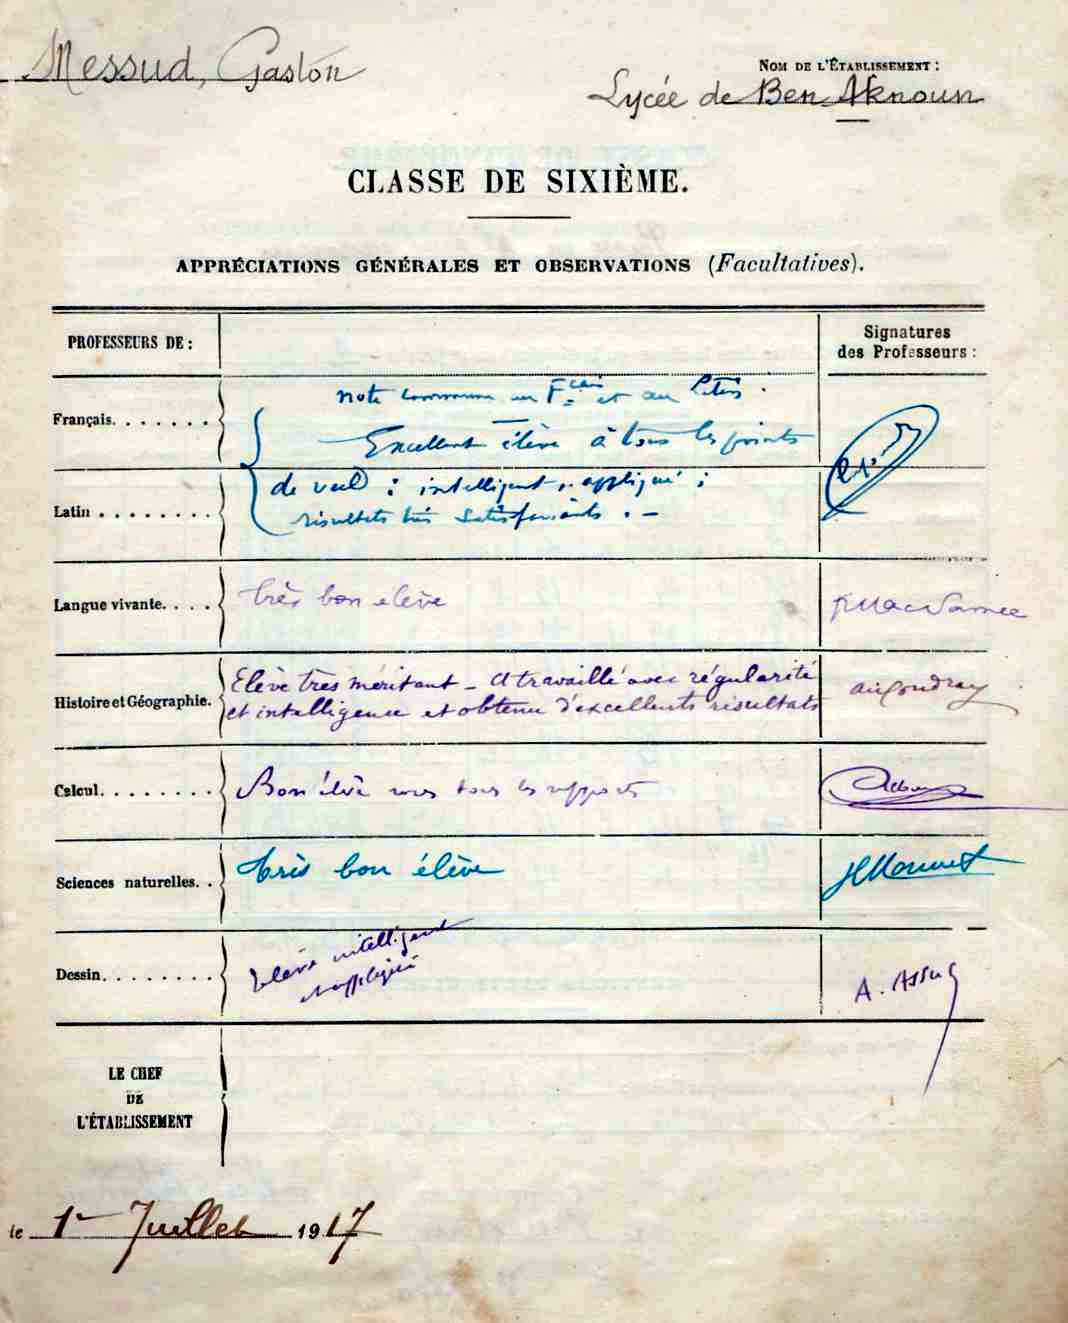 Messud, Gaston
NOM DE L'ÉTABLISSEMENT :
Lycée de Ben Aknoun
CLASSE DE SIXIÈME.
APPRÉCIATIONS GÉNÉRALES ET OBSERVATIONS (Facultatives).
PROFESSEURS DE :
Signatures
des Professeurs :
Français. . . . . . .
note commune au Fçais et au latin.
Excellent élève à tous les points
Latin . . . . . . . .
de vue : intelligent, appliqué ;
résultats très satisfaisants. –
Langue vivante. . . .
très bon élève
Histoire et Géographie.
Elève très méritant – A travaillé avec régularité
et intelligence et obtenu d'excellents résultats
Calcul. . . . . . . .
Bon élève sous tous les rapports
Sciences naturelles. .
très bon élève
Dessin. . . . . . . .
Elève intelligent
et appliqué
A. Assus
LE CHEF
DE
L'ÉTABLISSEMENT
le 1er Juillet 1917